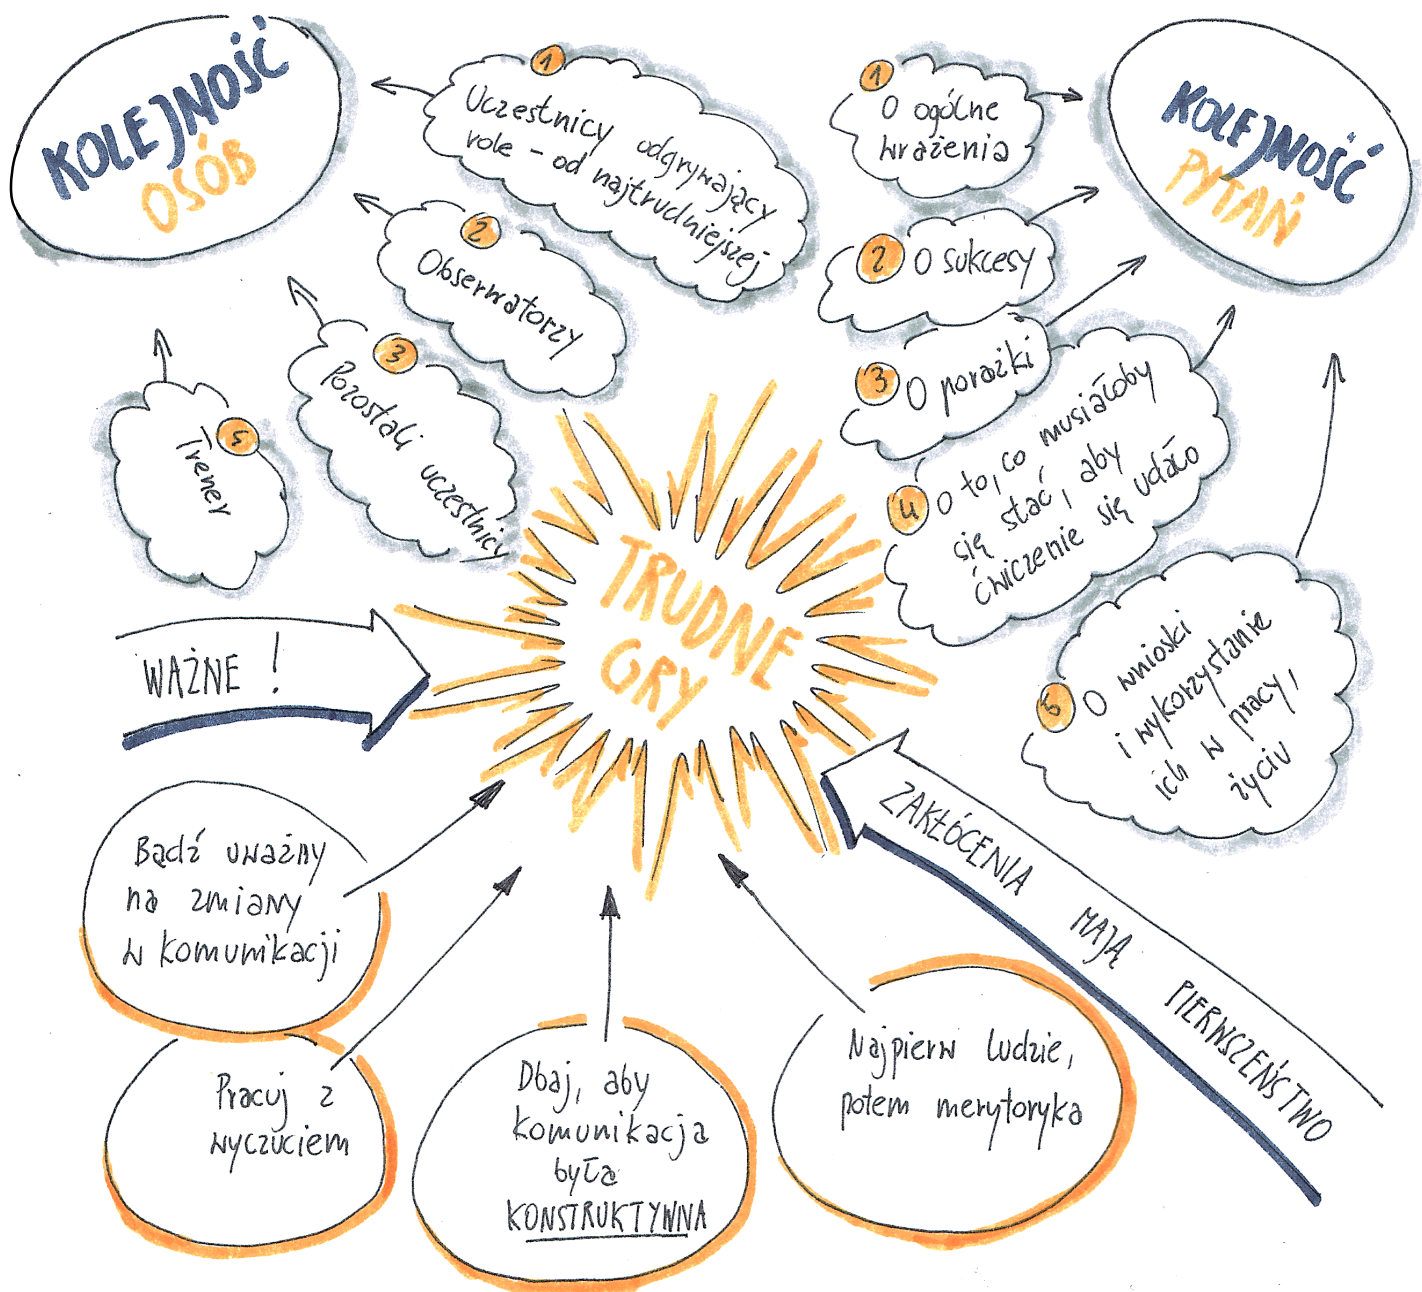 KOLEJNOŚĆ
OSÓB
1
Uczestnicy odgrywający
role - od najtrudniejszej
2
Obserwatorzy
3
Pozostali uczestnicy
Trener
KOLEJNOŚĆ
PYTAŃ
1
O ogólne
wrażenia
2
O sukcesy
3
O porażki
4
O to, co musiałoby
się stać, aby
ćwiczenie się udało
5
O wnioski
i wykorzystanie
ich w pracy,
życiu
TRUDNE
GRY
WAŻNE !
ZAKŁÓCENIA MAJĄ PIERWSZEŃSTWO
Bądź uważny
na zmiany
w komunikacji
Pracuj z
wyczuciem
Dbaj, aby
komunikacja
była
KONSTRUKTYWNA
Najpierw ludzie,
potem merytoryka